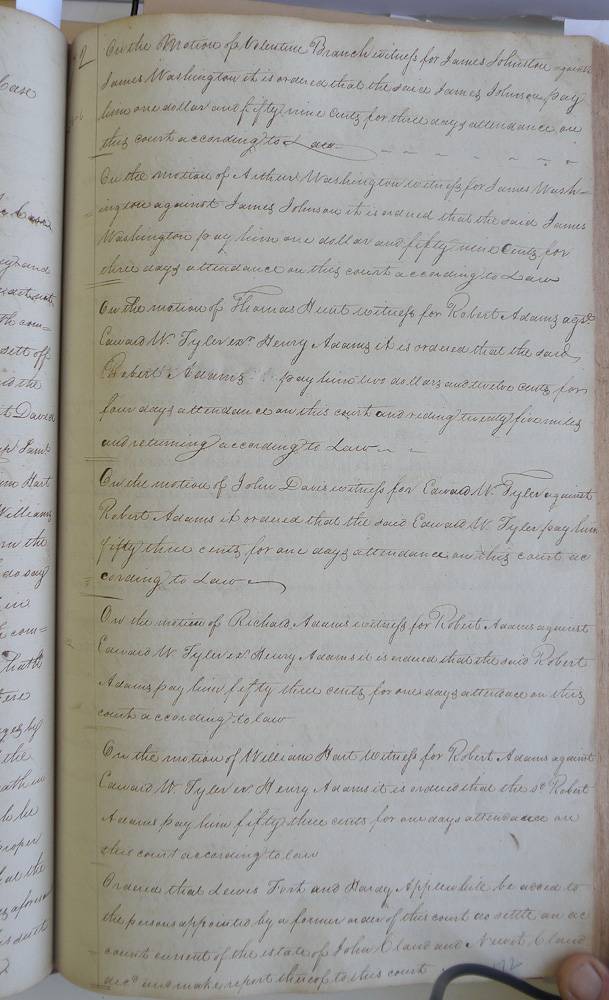 2 On the Motion of Valentine Branch witness for James Johnston against
James Washington it is ordered that the said James Johnson pay
him one dollar and fifty nine Cents for three days attendance on
this court according to Law
On the motion of Arthur Washington witness for James Wash-
ington against James Johnson it is ordered that the said James
Washington pay him one dollar and fifty nine Cents for
three days attendance on this court according to Law
On the motion of Thomas Hunt witness for Robert Adams agst
Edward W. Tyler exr Henry Adams it is ordered that the said
Robert Adams pay him two dollars and twelve cents for
four days attendance on this court and riding twenty five miles
and returning according to Law
On the motion of John Davis witness for Edward W. Tyler against
Robert Adams it ordered that the said Edward W. Tyler pay him
fifty three cents for one days attendance on this court ac
cording to Law
On the motion of Richard Adams witness for Robert Adams against
Edward W Tyler exr Henry Adams it is ordered that the said Robert
Adams pay him fifty three cents for one days attendace on this
court according to law
On the motion of William Hart witness for Robert Adams against
Edward W. Tyler exr Henry Adams it is ordered that the sd Robert
Adams pay him fifty three cents for one days attendance on
this court according to law
Ordered that Lewis Fort and Hardy Applewhite be added to
the persons appointed by a former order of this court to settle an ac
count current of the estate of John Bland and Bland
decd and make report thereof to this court
172